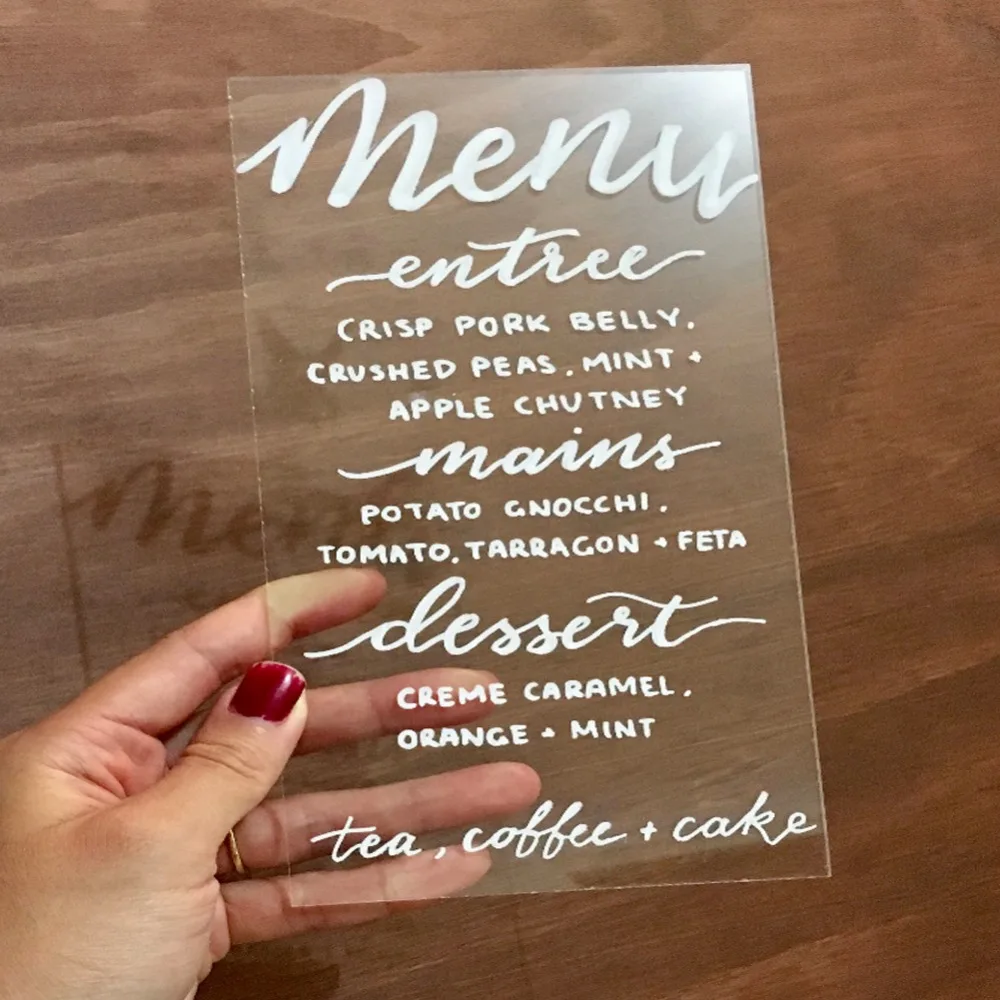 Menu
entree
CRISP PORK BELLY,
CRUSHED PEAS, MINT +
APPLE CHUTNEY
mains
POTATO GNOCCHI,
TOMATO, TARRAGON + FETA
dessert
CREME CARAMEL,
ORANGE + MINT
tea, coffee + cake